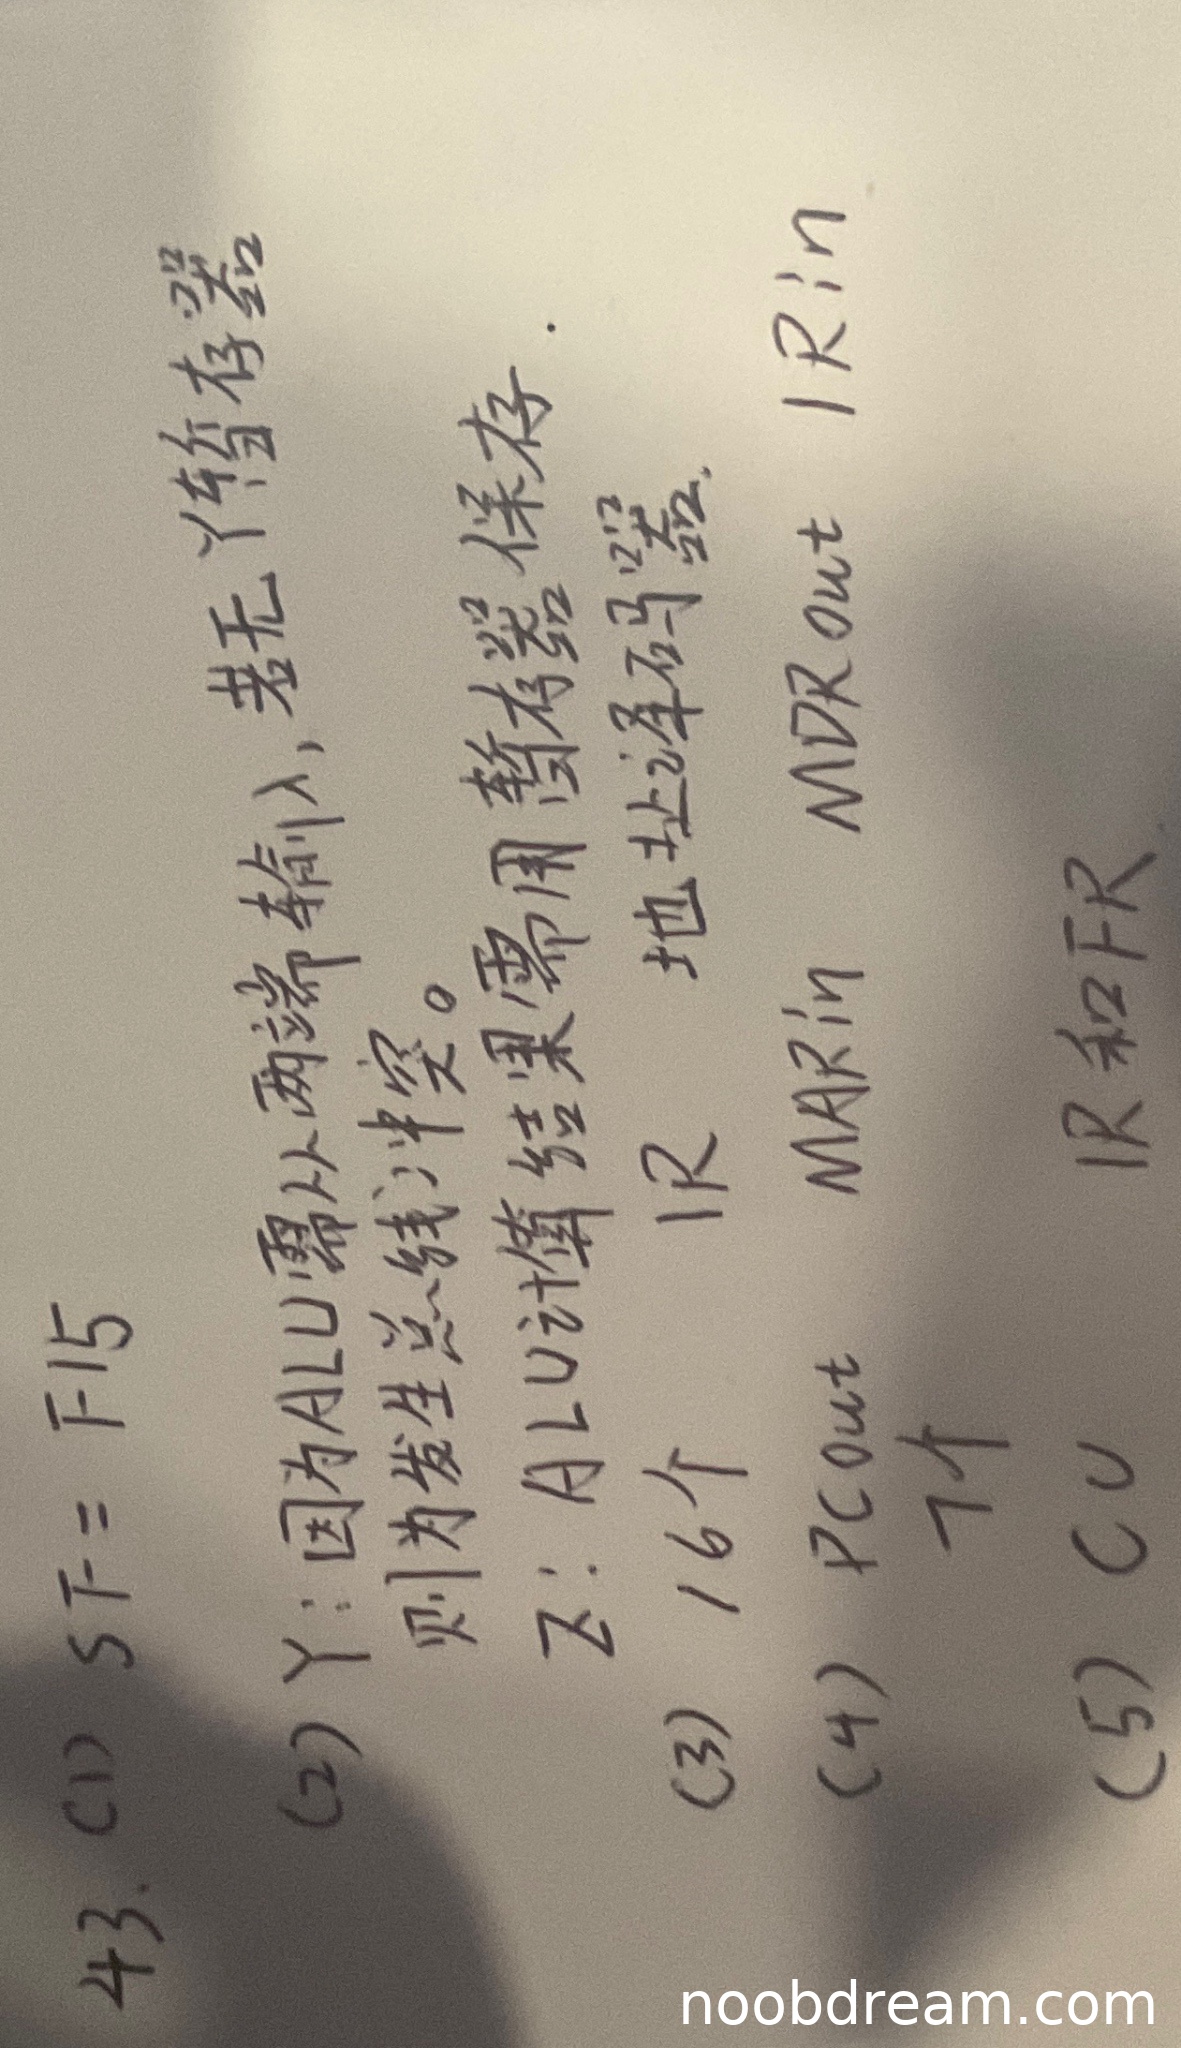 43. (1) SF = F15
(2) Y: 因为ALU需从两端输入, 若无Y暂存器
则为发生总线冲突。
Z: ALU计算结果需用暂存器保存.
(3) 16个 IR 地址译码器.
(4) PCout MARin MDRout IRin
7个
(5) CU IR和FR
noobdream.com